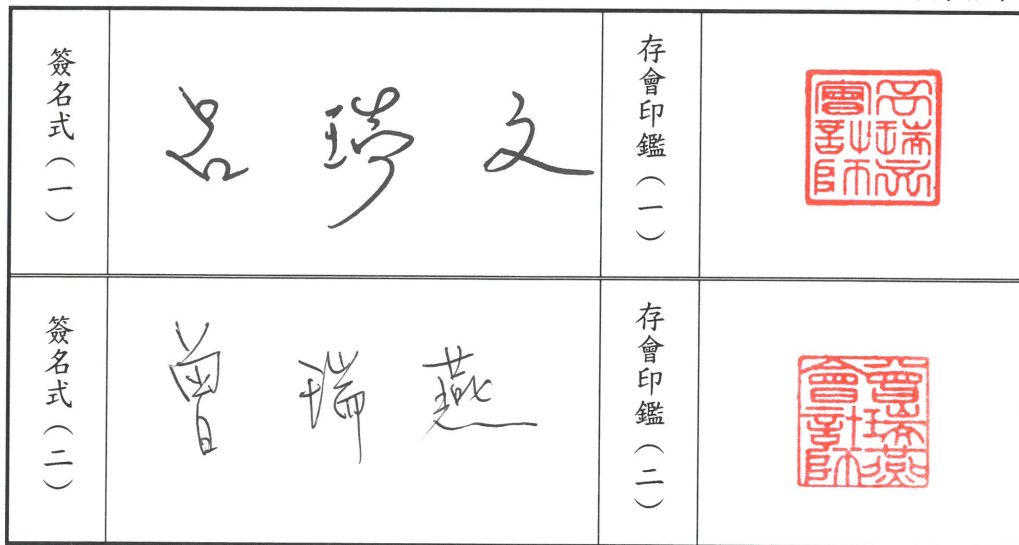 簽名式（一）
呂瑞文
存會印鑑（一）
呂瑞文會計師
簽名式（二）
曾瑞燕
存會印鑑（二）
曾瑞燕會計師